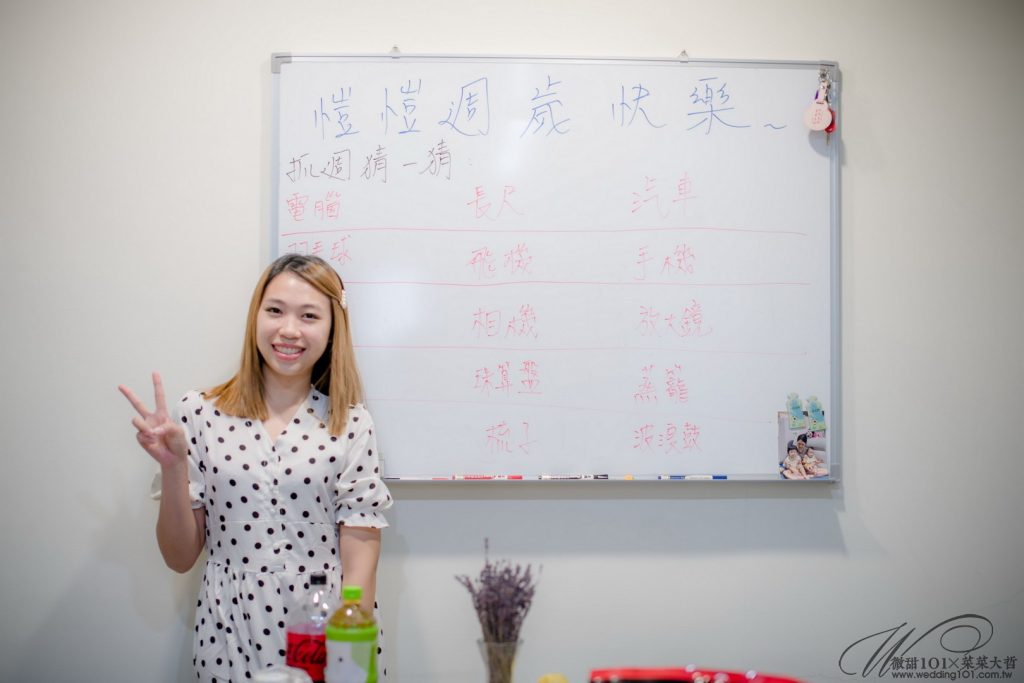 愷愷週歲快樂~
抓週猜一猜:
電腦 長尺 汽車
羽毛球 飛機 手機
相機 放大鏡
珠算盤 蒸籠
梳子 波浪鼓
Coca-Cola
微甜101×菜菜大哲
www.wedding101.com.tw